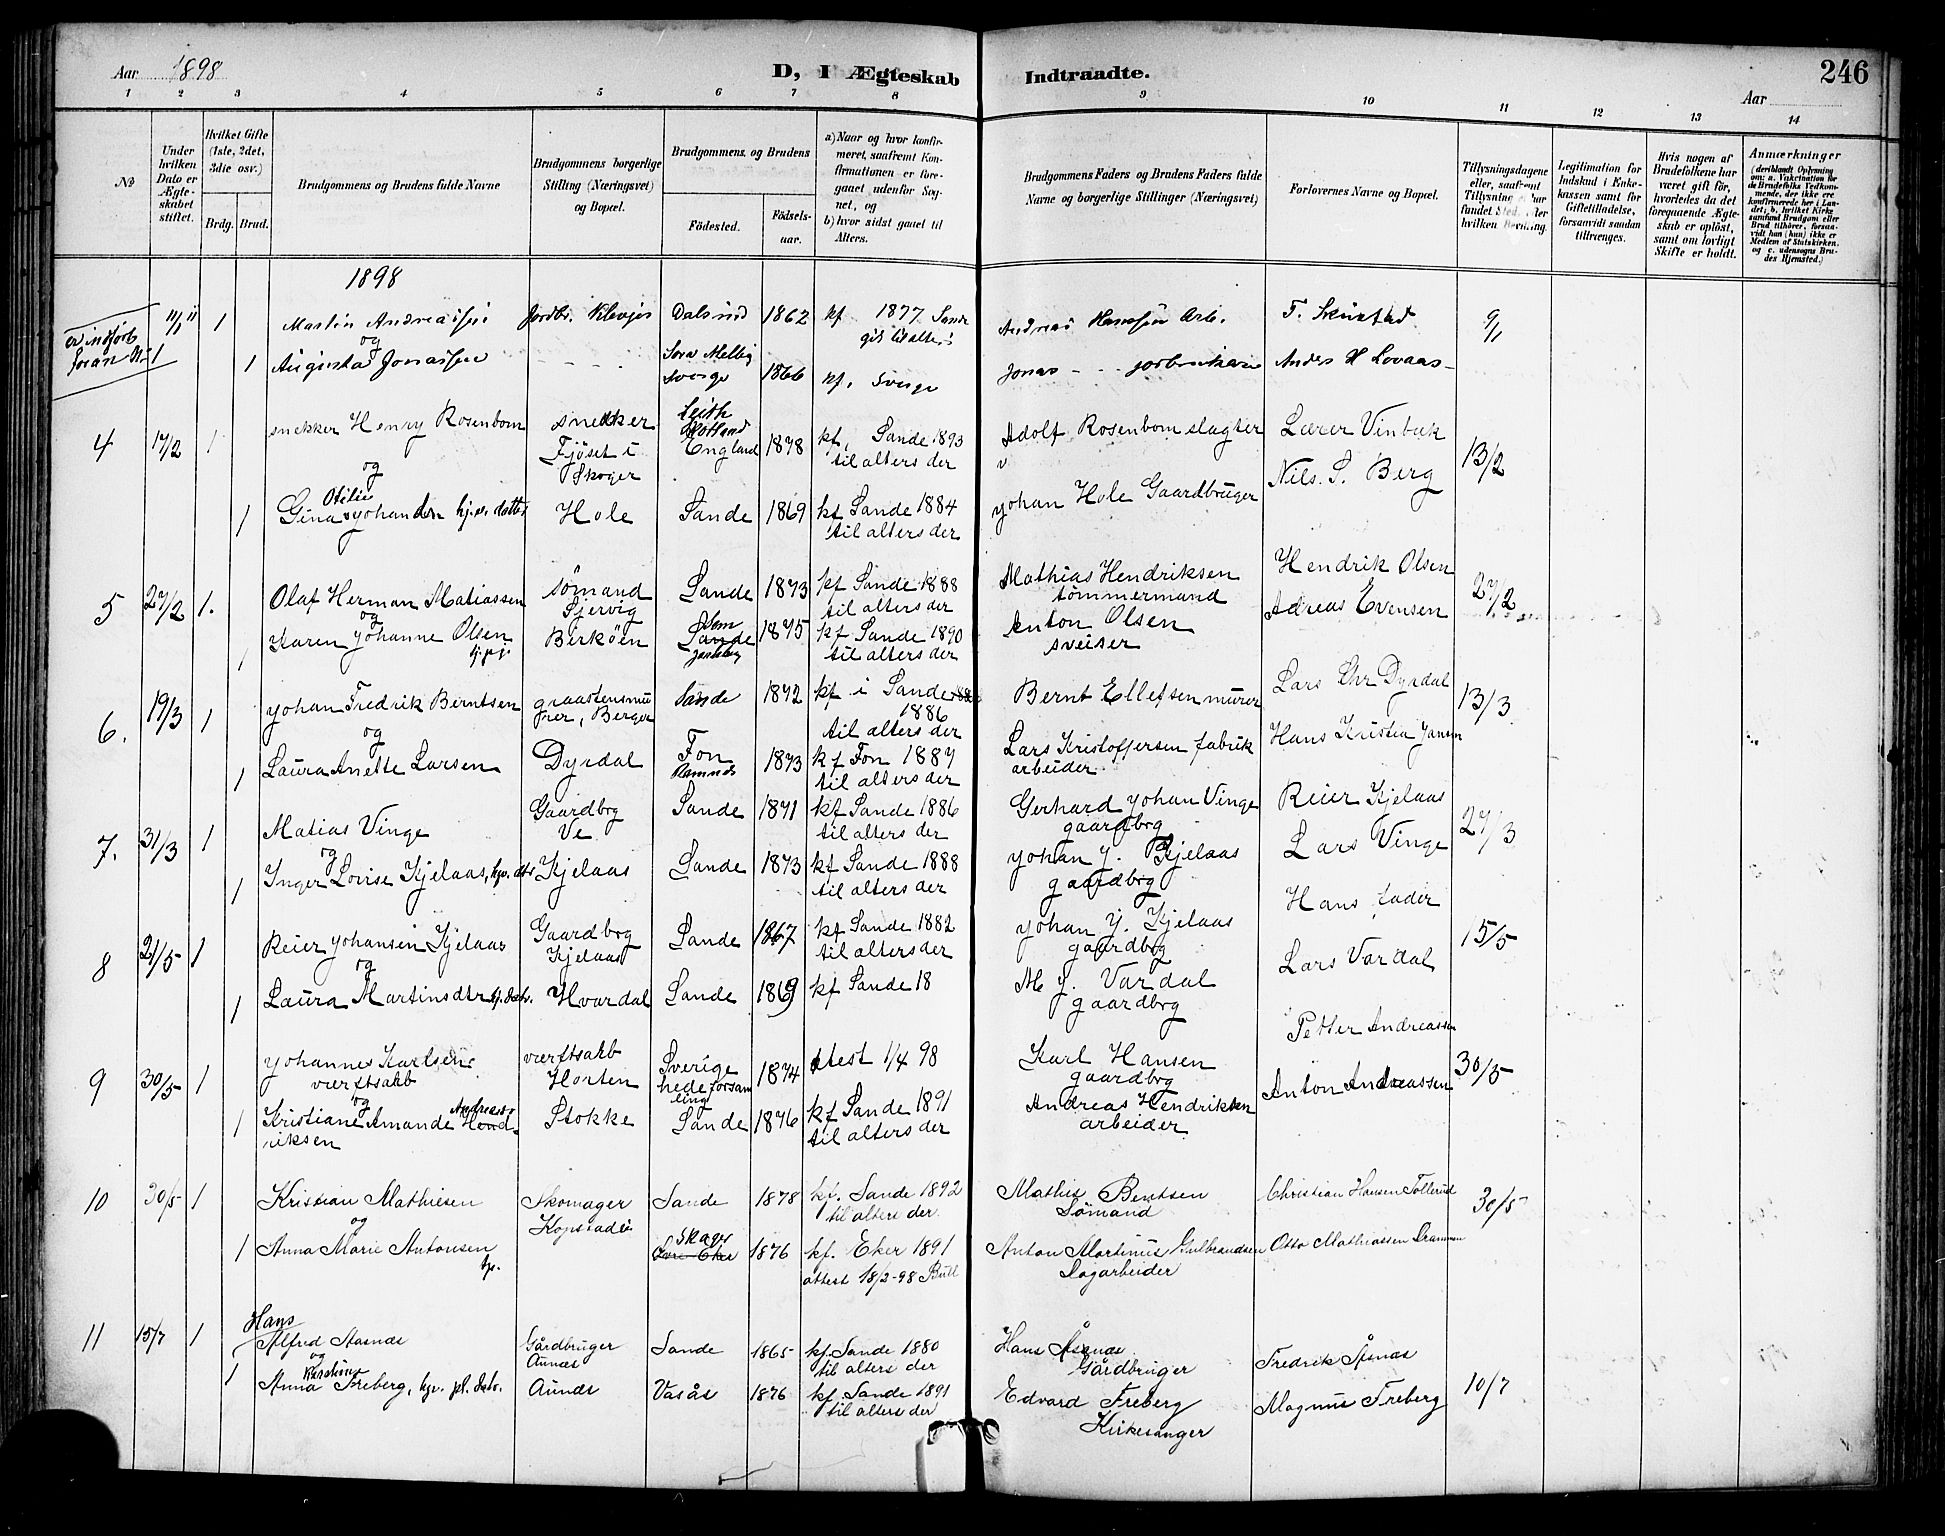 Aar 1898
D, I Ægteskab Indtraadte.
246
Aar
1 2 3 4 5 6 7 8 9 10 11 12 13 14
№
Under hvilken Dato er Ægteskabet stiftet.
Hvilket Gifte (1ste, 2det, 3die osv.)
Brdg. Brud.
Brudgommens og Brudens fulde Navne
Brudgommens borgerlige Stilling (Næringsvei) og Bopæl.
Brudgommens og Brudens
Fødested. Fødselsaar.
a) Naar og hvor konfirmeret, saafremt Konfirmationen er foregaaet udenfor Sognet, og
b) hvor sidst gaaet til Alters.
Brudgommens Faders og Brudens Faders fulde Navne og borgerlige Stillinger (Næringsvei)
Forlovernes Navne og Bopæl.
Tillysningsdagene eller, saafremt Tillysning ei har fundet Sted, efter hvilken Bevilling.
Legitimation for Indskud i Enkekassen samt for Giftetilladelse, forsaavidt saadan tiltrænges.
Hvis nogen af Brudefolkene har været gift før, hvorledes da det foregaaende Ægteskab er opløst, samt om lovligt Skifte er holdt.
Anmærkninger (deriblandt Oplysning om: a. Vakcination for de Brudefolks Vedkommende, der ikke ere konfirmerede her i Landet; b. hvilket Kirkesamfund Brudgom eller Brud tilhører, forsaavidt han (hun) ikke er Medlem af Statskirken, og c. udensogns Brudes Hjemsted.)
1898
er indført foran № 1
11/1 1 Martin Andreassen Jordbr. Klevjer Dalsrud 1862 kf 1877 Sande
Andreas Hanssen Arb. F. Skinstad 9/1
og
gik til alters
1 Augusta Jonassen Sverge 1866 kf. Sverge
Jonas jorbruker Anders H Lovaas
4 17/2 1 snekker Henry Rosenbom snekker Fjöset i Skoger Leith Skotland England 1878 kf, Sande 1893 til alters der
Adolf Rosenbom slagter Lærer Vinbæk 13/2
og
1 Gina Otilie Johansen Hole Sande 1869 kf Sande 1884 til alters der
Johan Hole Gaardbruger Nils. S. Berg
5 27/2 1. Olaf Herman Matiassen sömand Sjervig Sande 1873 kf Sande 1888 til alters der
Mathias Hendriksen tömmermand Hendrik Olsen 27/2
og
1 Karen Johanne Olsen Berköen Sande 1875 kf Sande 1890 til alters der
Anton Olsen sveiser Adreas Evensen
6. 19/3 1 Johan Fredrik Berntsen graastensmurer, Berger Sande 1872 kf i Sande 1886 til alters der
Bernt Ellefsen murer Lars Chr Dyrdal 13/3
og
1 Laura Anette Larsen Dyrdal Fon Ramnes 1873 kf Fon 1887 til alters der
Lars Kristoffersen fabrik arbeider Hans Kristia Jansen
7. 31/3 1 Matias Vinge Gaardbrg Ve Sande 1871 kf Sande 1886 til alters der
Gerhard Johan Vinge gaardbrg Reier Kjelaas 27/3
og
1 Inger Lovise Kjelaas, Kjelaas Sande 1873 kf Sande 1888 til alters der
Johan J. Kjelaas gaardbrg Lars Vinge
8 21/5 1 Reier Johansen Kjelaas Gaardbrg Kjelaas Sande 1867 kf Sande 1882 til alters der
Johan J. Kjelaas gaardbrg Hans fader 15/5
og
1 Laura Martinsdtr Hvardal Sande 1869 kf Sande 18
M J. Vardal gaardbrg Lars Vardal
9 30/5 1 Johannes Karlsen værftsakb værftsakb Horten Sverige hede forsamling 1874 attest 1/4 98
Karl Hansen gaardbrg Petter Andreassen 30/5
og
1 Kristiane Amande Hendriksen Stokke Sande 1876 kf Sande 1891 til alters der
Andreas Hendriksen arbeider Anton Andreassen
10 30/5 1 Kristian Mathiesen Skomager Kopstad Sande 1878 kf. Sande 1892 til alters der
Mathis Bentsen Sömand Christian Hansen Tollerud 30/5
og
1 Anna Marie Antonsen Skoger Övre Eker 1876 kf. Eker 1891 attest 18/2-98 Bull
Anton Martinus Gulbrandsen Dagarbeider Otto Mathiassen Drammen
11 15/7 1 Hans Alfred Aasnæs Gårdbruger Sande 1865 kf. Sande 1880 til alters der
Hans Åsnæs Gårdbruger Fredrik Åsnæs 10/7
og
1 Anna Freberg, Vasås 1876 kf. Sande 1891 til alters der
Edvard Freberg Kirkesanger Magnus Freberg